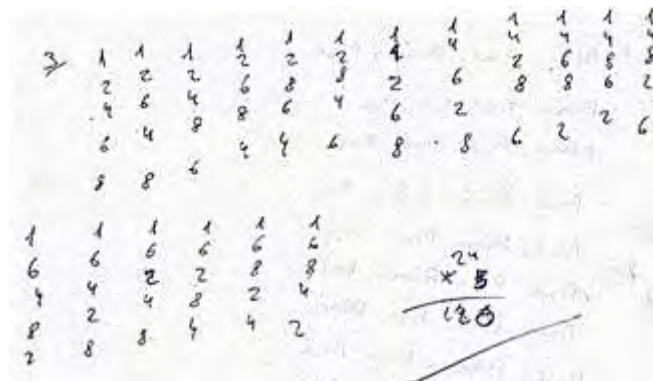 3) 1 1 1 1 1 1 1 1 1 1 1 1
2 2 2 2 2 2 4 4 4 4 4 4
4 6 4 6 8 8 2 6 2 6 8 8
6 4 8 8 6 4 6 2 8 8 6 2
8 8 6 4 4 6 8 8 6 2 2 6
1 1 1 1 1 1
6 6 6 6 6 6
4 4 2 2 8 8
8 2 4 8 2 4
2 8 8 4 4 2
24
× 5
120